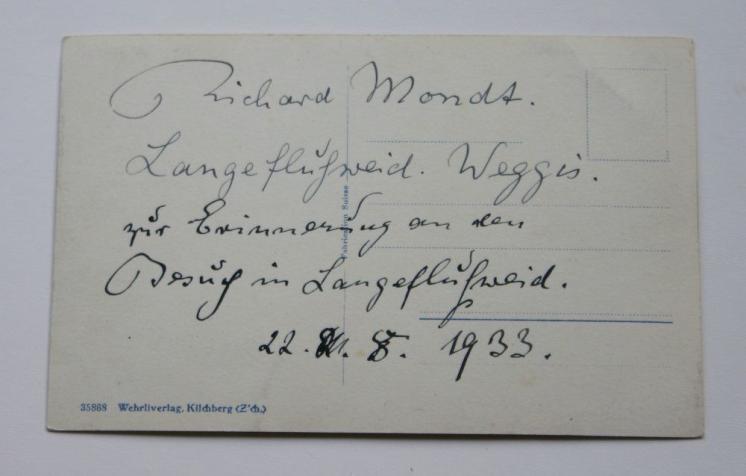 Richard Mondt.
Langefluhweid. Weggis.
zur Erinnerung an den
Besuch in Langefluhweid.
22. 8. 1933.
Fabrication Suisse
35868 Wehrliverlag, Kilchberg (Z'ch.)